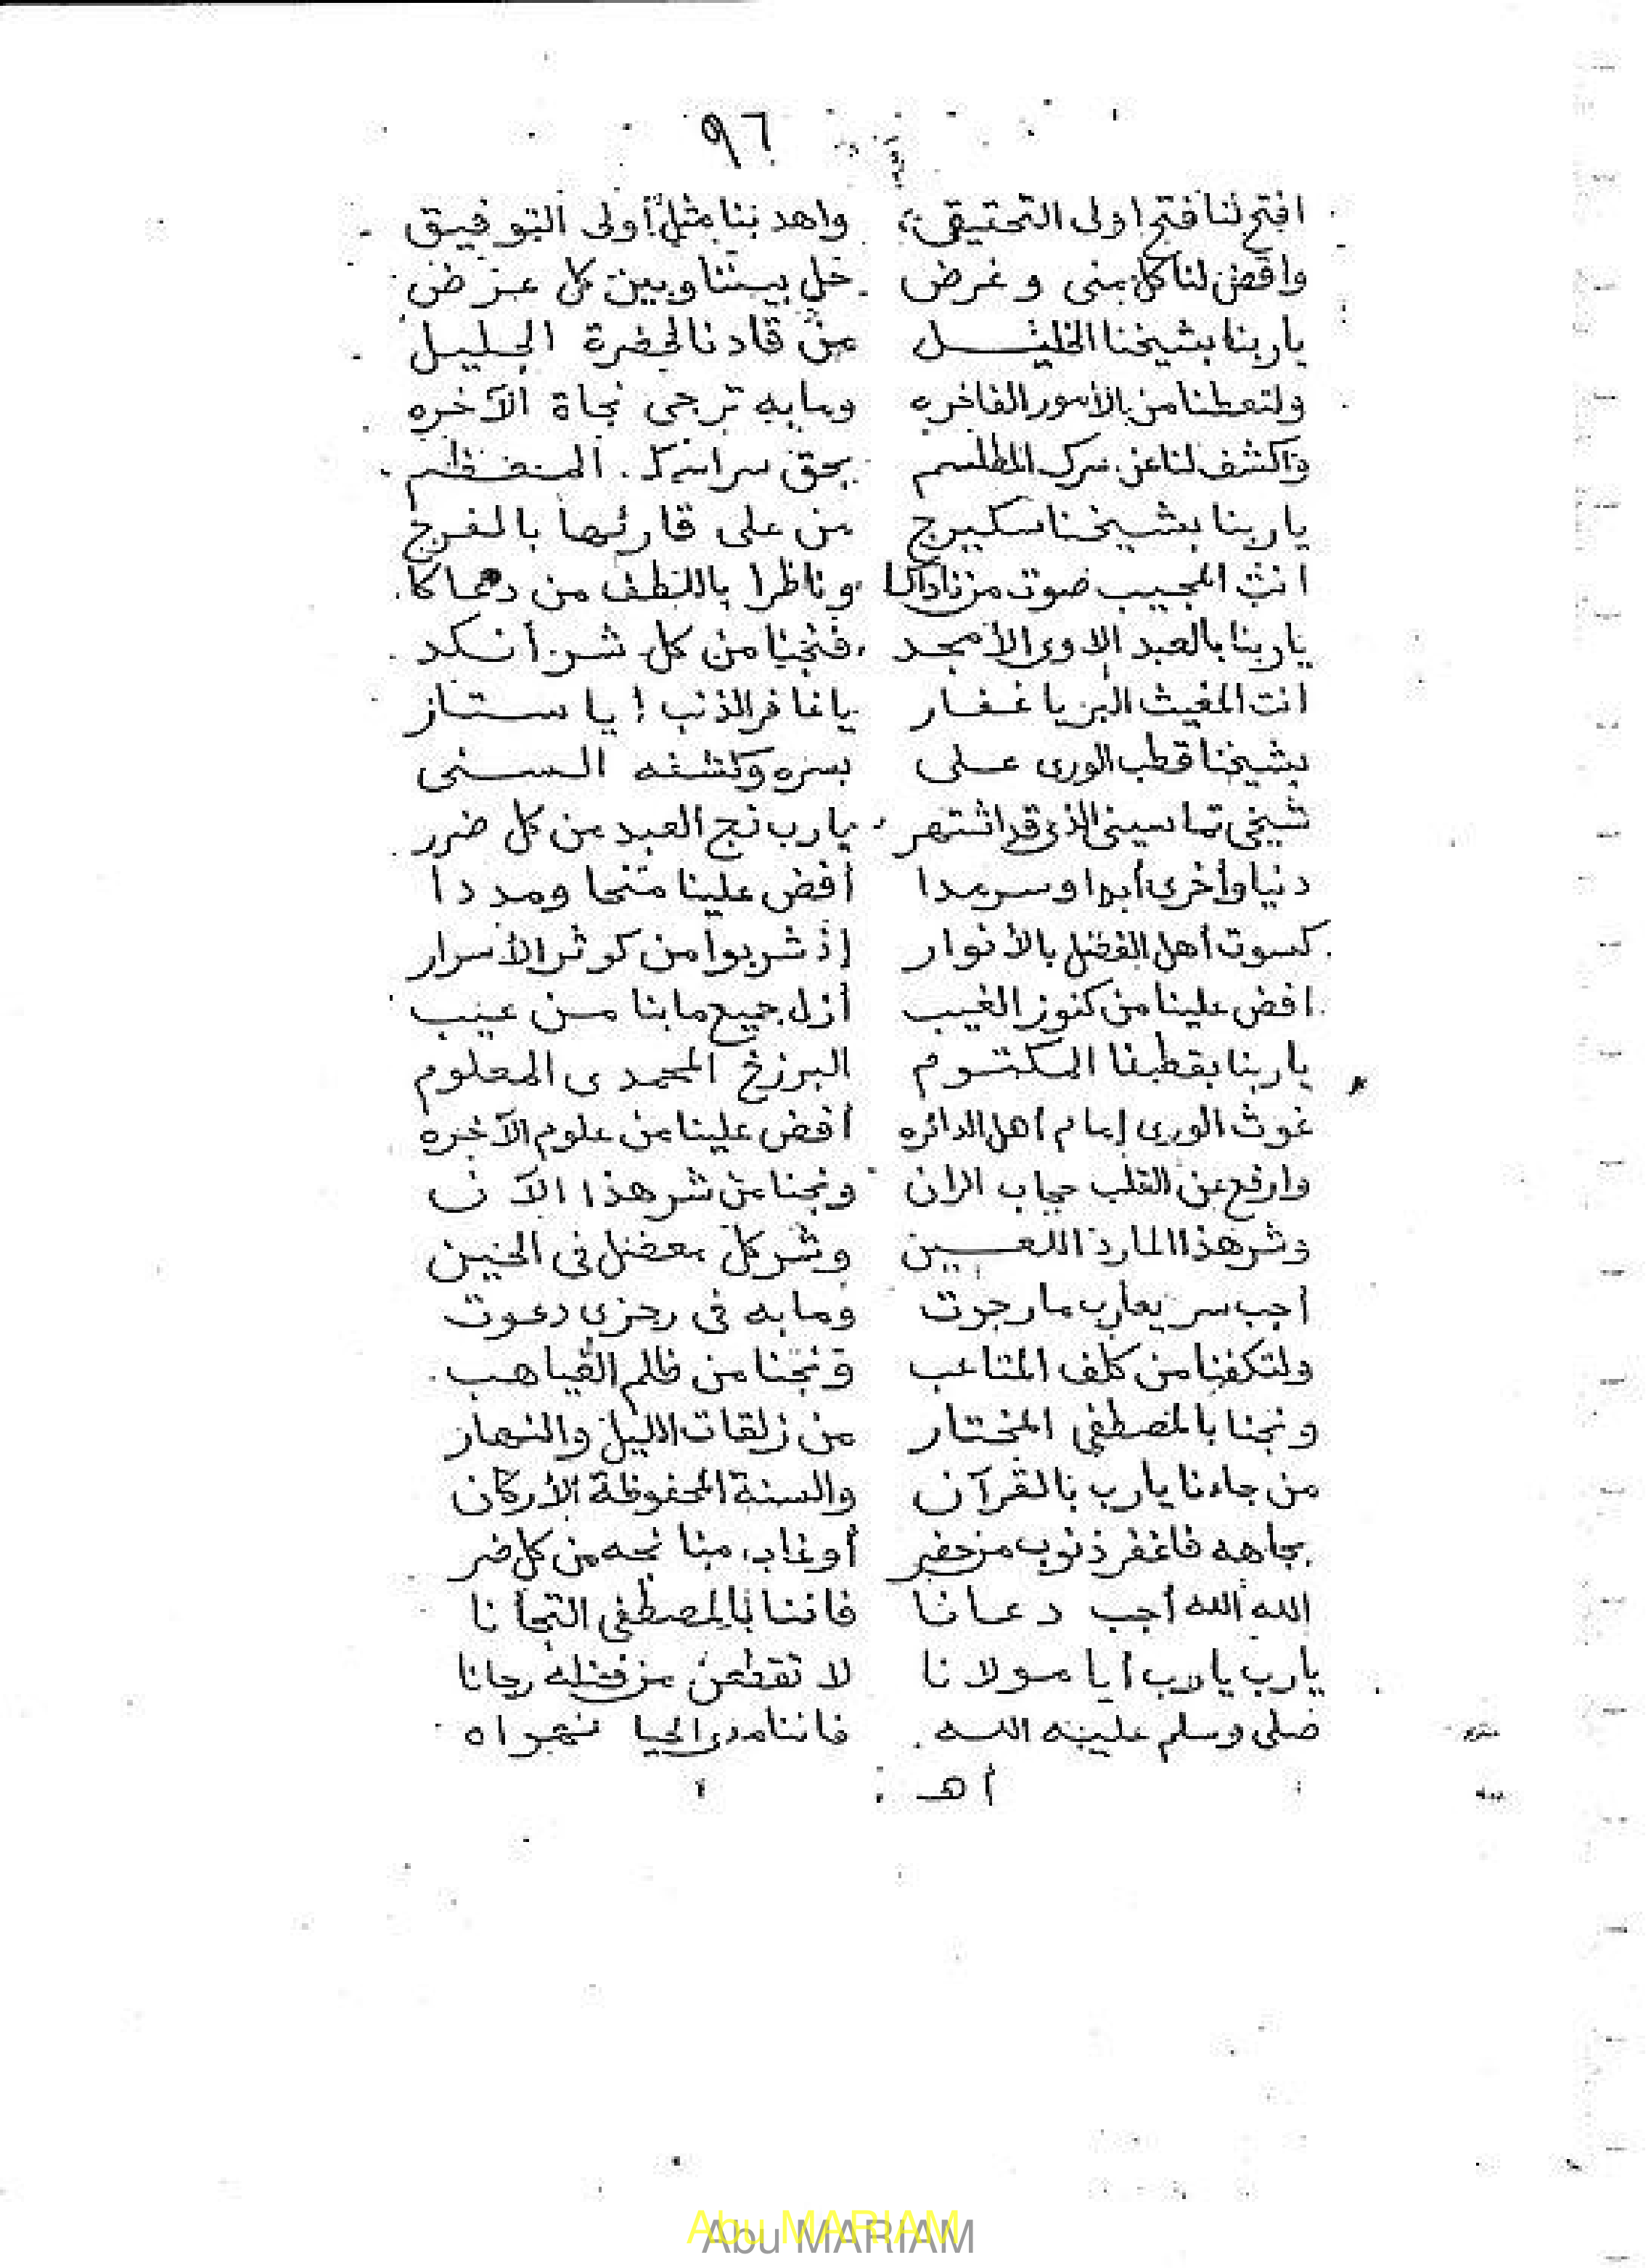 ٩٦
افتح لنا فتح اولى التحقيق واهد بنا مثل أولى التوفيق
واقض لنا كل منى وغرض خل بيننا وبين كل عرض
يا ربنا بشيخنا الخليل من قادنا لحضرة الجليل
ولتعطنا من الأمور الفاخره وما به ترجى نجاة الآخره
واكشف لنا عن سرك المطلسم بحق سر اسمك
يا ربنا بشيخنا سكيرج من على قارئها بالفرج
انت المجيب صوت من ناداكا وناظرا باللطف من
يا ربنا بالعبد الاوى الأمجد فنجنا من كل شر أنكد
انت المغيث البر يا غفار يا غافر الذنب أيا ستار
بشيخنا قطب الورى على بسره وكشفه السنى
شيخى تماسينى الذى قد اشتهر يا رب نج العبد من كل ضرر
دنيا وأخرى أبدا وسرمدا أفض علينا منحا ومددا
كسوت أهل الفضل بالأنوار إذ شربوا من كوثر الأسرار
افض علينا من كنوز الغيب أزل جميع ما بنا من عيب
يا ربنا بقطبنا المكتوم البرزخ المحمدى المعلوم
غوث الورى إمام أهل الدائره أفض علينا من علوم الآخره
وارفع عن القلب حجاب الران ونجنا من شر هذا الآن
وشر هذا المارد اللعين وشر كل معضل فى الحين
أجب سريعا رب ما رجوت وما به فى رجزى دعوت
ولتكفنا من كلف المتاعب ونجنا من ظلم الغياهب
ونجنا بالمصطفى المختار من زلقات الليل والنهار
من جاءنا يا رب بالقرآن والسنة المحفوظة الأركان
بجاهه فاغفر ذنوب من حضر أو غاب منا نجه من كل ضر
الله الله أجب دعانا فاننا بالمصطفى التجأنا
يا رب يا رب أيا مولانا لا تقطعن من فضله رجانا
صلى وسلم عليه الله فاننا مدى الحيا نهواه
أهـ
Abu MARIAM